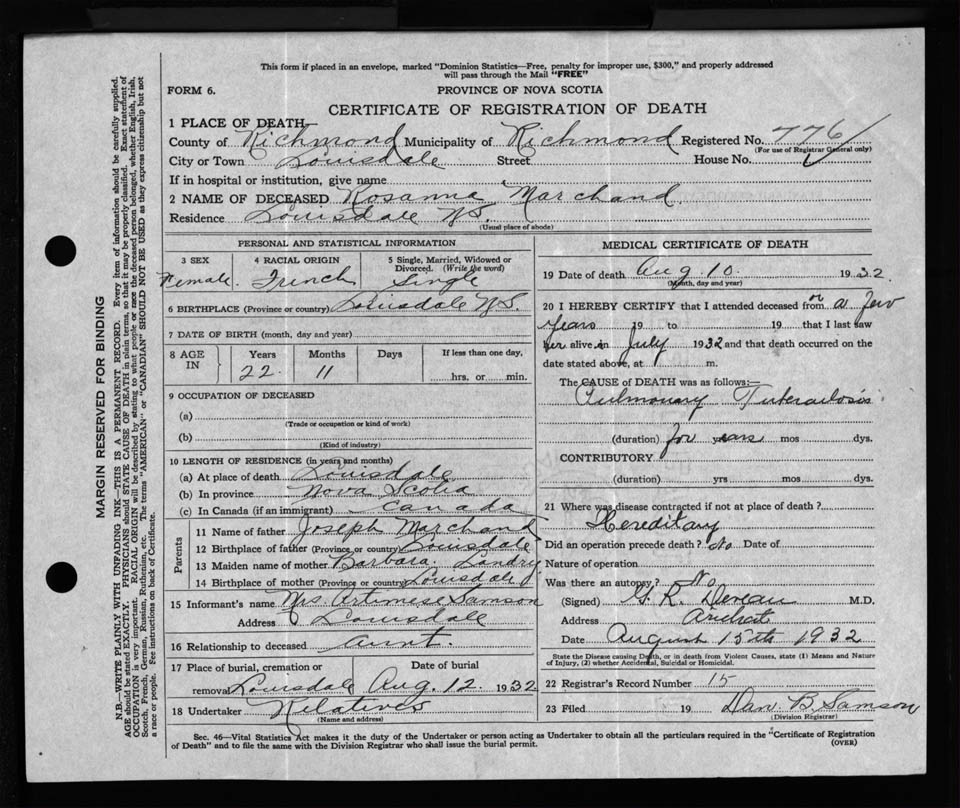 This form if placed in an envelope, marked "Dominion Statistics—Free, penalty for improper use, $300," and properly addressed
will pass through the Mail "FREE"
FORM 6.
PROVINCE OF NOVA SCOTIA
CERTIFICATE OF REGISTRATION OF DEATH
1 PLACE OF DEATH—
County of Richmond Municipality of Richmond Registered No. 776
(For use of Registrar General only)
City or Town Louisdale Street House No.
If in hospital or institution, give name
2 NAME OF DECEASED Rosanna Marchand
Residence Louisdale N.S.
(Usual place of abode)
PERSONAL AND STATISTICAL INFORMATION
3 SEX 4 RACIAL ORIGIN 5 Single, Married, Widowed or
Divorced. (Write the word)
Female. French Single
6 BIRTHPLACE (Province or country) Louisdale N.S.
7 DATE OF BIRTH (month, day and year)
8 AGE IN Years Months Days If less than one day,
22 11 hrs. or min.
9 OCCUPATION OF DECEASED
(a)
(Trade or occupation or kind of work)
(b)
(Kind of industry)
10 LENGTH OF RESIDENCE (in years and months)
(a) At place of death Louisdale
(b) In province Nova Scotia
(c) In Canada (if an immigrant) Canada
Parents
11 Name of father Joseph Marchand
12 Birthplace of father (Province or country) Louisdale
13 Maiden name of mother Barbara Landry
14 Birthplace of mother (Province or country) Louisdale
15 Informant's name Mrs Artimese Samson
Address Louisdale
16 Relationship to deceased aunt.
17 Place of burial, cremation or Date of burial
removal Louisdale Aug. 12. 1932
18 Undertaker Relatives
(Name and address)
MEDICAL CERTIFICATE OF DEATH
19 Date of death Aug. 10. 1932
(Month, day and year)
20 I HEREBY CERTIFY that I attended deceased for a few
years 19 to 19 that I last saw
her alive in July 1932 and that death occurred on the
date stated above, at m.
The CAUSE OF DEATH was as follows:—
Pulmonary Tuberculosis
(duration) for years mos dys.
CONTRIBUTORY
(duration) yrs mos dys.
21 Where was disease contracted if not at place of death?
Hereditary
Did an operation precede death? No Date of
Nature of operation
Was there an autopsy? No
(Signed) G. R. Deveau M.D.
Address Arichat
Date August 15th 1932
State the Disease causing Death, or in death from Violent Causes, state (1) Means and Nature
of Injury, (2) whether Accidental, Suicidal or Homicidal.
22 Registrar's Record Number 15
23 Filed 19 Dan. B. Samson
(Division Registrar)
Sec. 46—Vital Statistics Act makes it the duty of the Undertaker or person acting as Undertaker to obtain all the particulars required in the "Certificate of Registration
of Death" and to file the same with the Division Registrar who shall issue the burial permit.
(OVER)
MARGIN RESERVED FOR BINDING
N.B.—WRITE PLAINLY WITH UNFADING INK—THIS IS A PERMANENT RECORD. Every item of information should be carefully supplied.
AGE should be stated EXACTLY. PHYSICIANS should STATE CAUSE OF DEATH in plain terms, so that it may be properly classified. Exact statement of
OCCUPATION is very important. RACIAL ORIGIN will be described by stating to what people or race the deceased person belonged, whether English, Irish,
Scotch, French, German, Russian, Ruthenian, etc. The terms "AMERICAN" or "CANADIAN" SHOULD NOT BE USED as they express citizenship but not
a race or people. Fee instructions on back of Certificate.